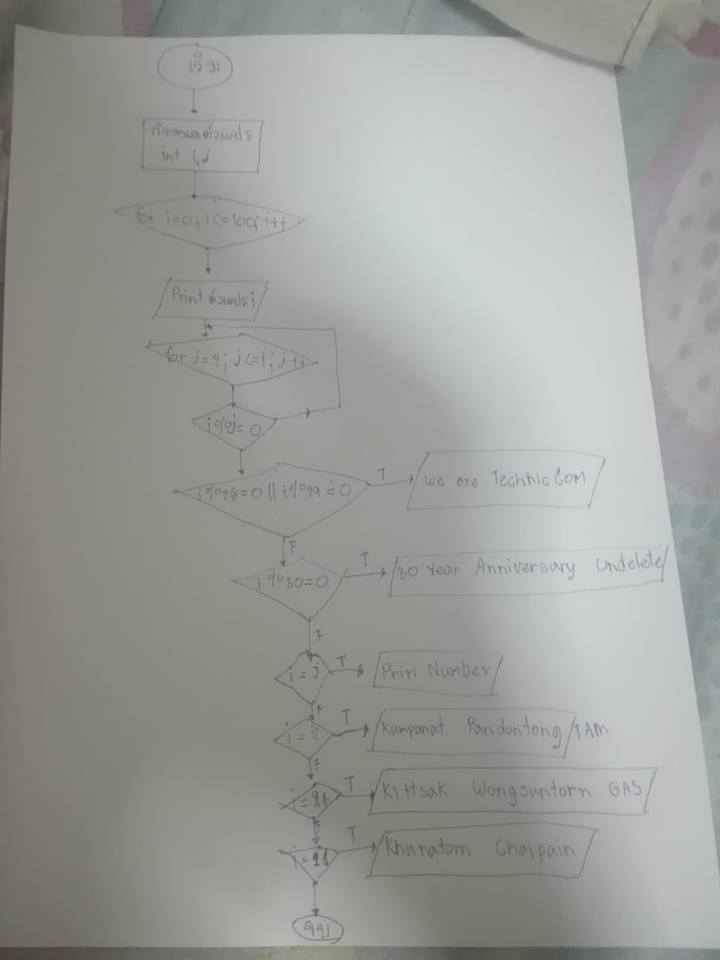 เริ่ม
กำหนดตัวแปร
int i,j
for i=0; i<=100; i++
Print ตัวแปร i
for j=2; j<=i; j++
i%j=0
T
We are Technic Com
F
T
30 Year Anniversary Undelete
i%30=0
F
i=j
T
Prim Number
F
i=2
T
Kumpanat Pandontong TAM
F
T
Kittsak Wongsuntorn GAS
F
T
Chaipain
จบ